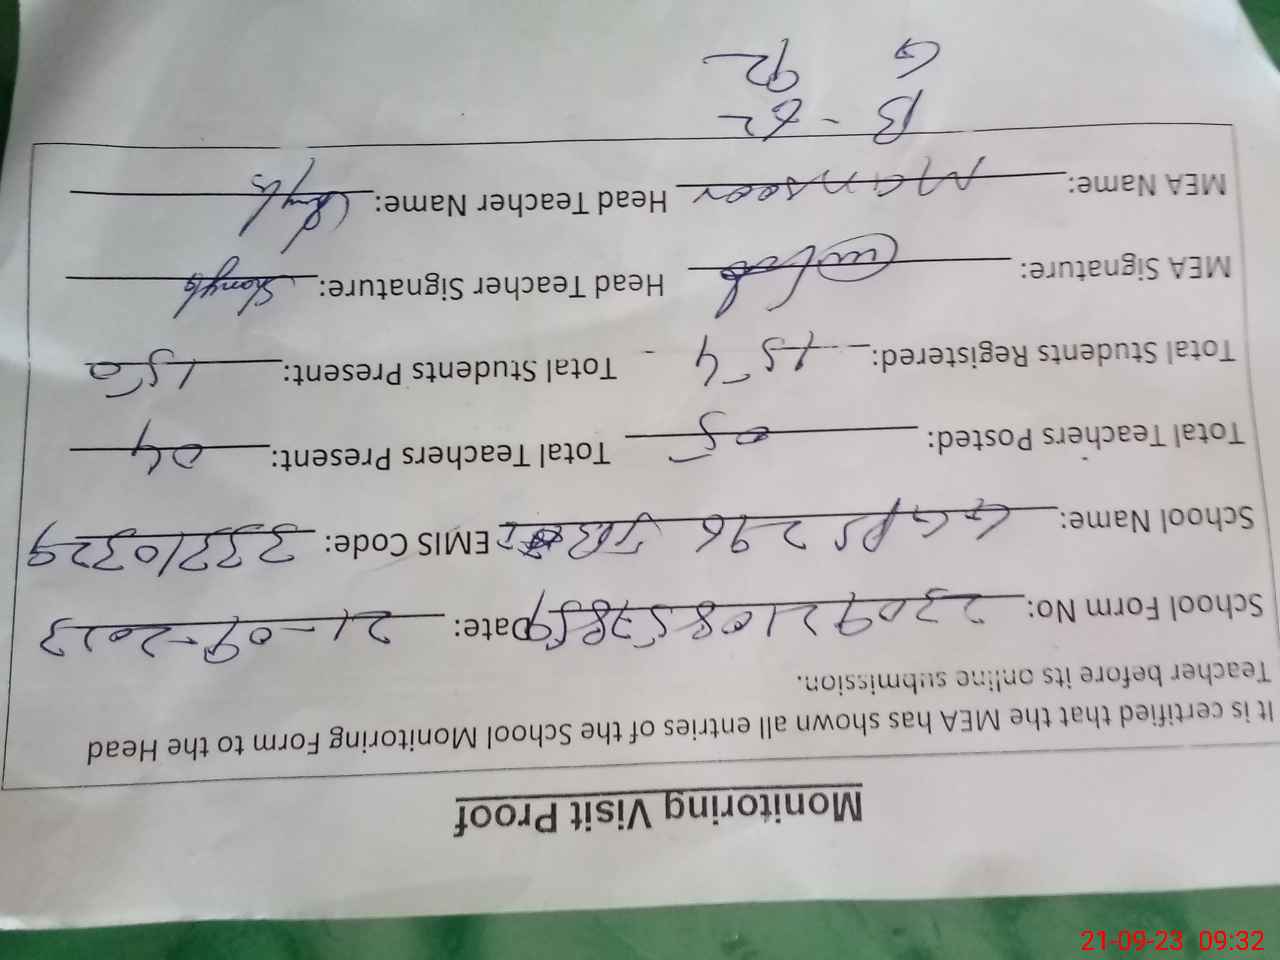 Monitoring Visit Proof
It is certified that the MEA has shown all entries of the School Monitoring Form to the Head
Teacher before its online submission.
School Form No: 2309210857859 Date: 21-09-2023
School Name: GGPS 296 EMIS Code: 33310329
Total Teachers Posted: 05 Total Teachers Present: 04
Total Students Registered: 154 Total Students Present: 150
MEA Signature: Head Teacher Signature:
MEA Name: Mansoor Head Teacher Name:
B - 62
G 92
21-09-23 09:32